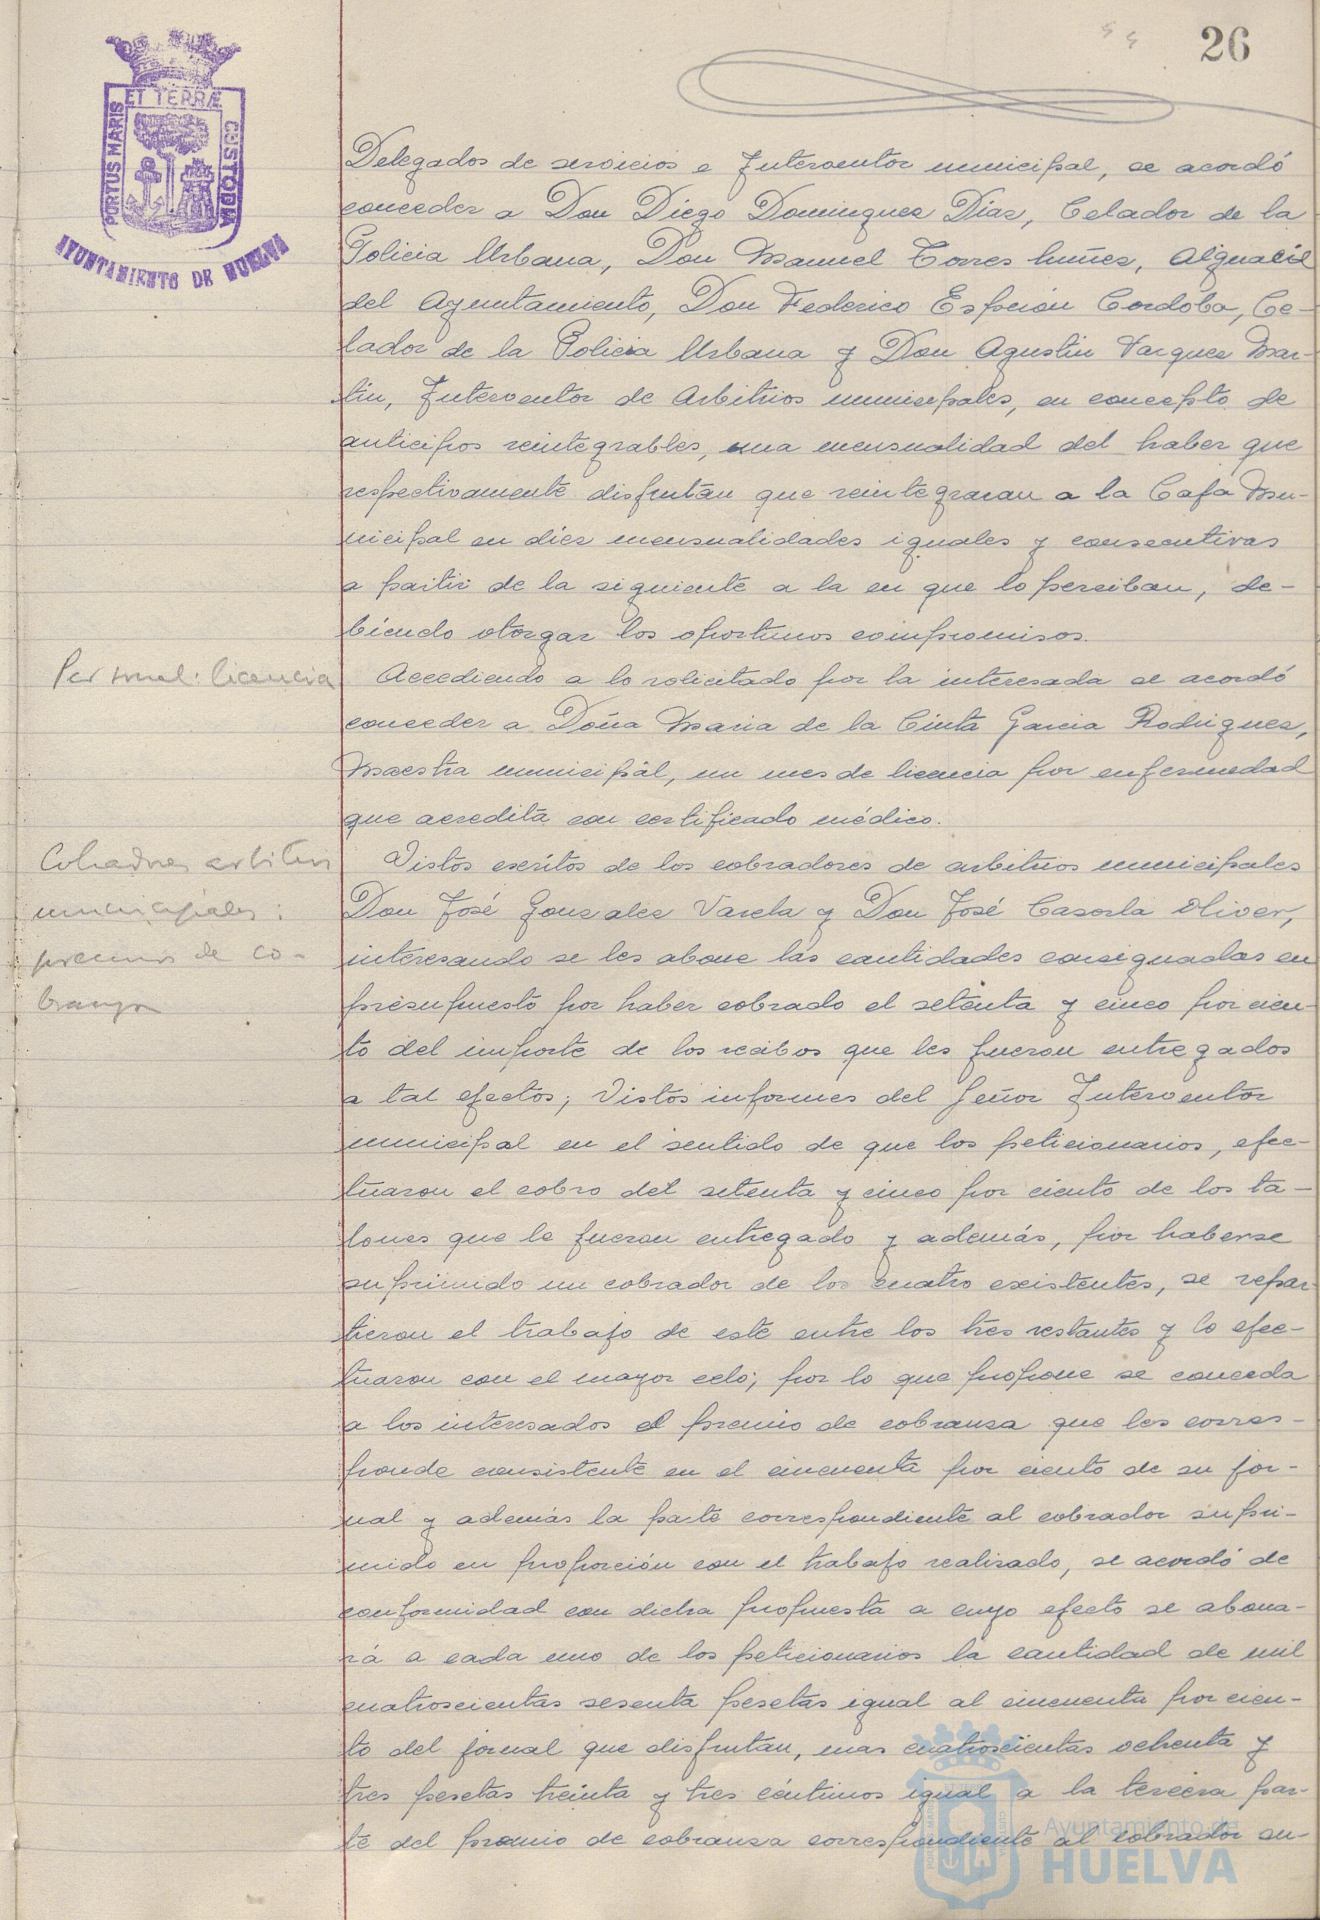 26
PORTUS MARIS ET TERRÆ CUSTODIA
AYUNTAMIENTO DE HUELVA
Delegados de servicios e Interventor municipal, se acordó
conceder a Don Diego Dominguez Diaz, Celador de la
Policia Urbana, Don Manuel Torres Nuñez, Alguacil
del Ayuntamiento, Don Federico Espción Cordoba, Ce-
lador de la Policia Urbana y Don Agustin Vazquez Mar-
tin, Interventor de Arbitrios municipales, en concepto de
anticipos reintegrables, una mensualidad del haber que
respectivamente disfrutan que reintegraran a la Caja Mu-
nicipal en diez mensualidades iguales y consecutivas
a partir de la siguiente a la en que lo perciban, de-
biendo otorgar los oportunos compromisos.
Personal: licencia
Accediendo a lo solicitado por la interesada se acordó
conceder a Doña Maria de la Cinta Garcia Rodriguez,
Maestra municipal, un mes de licencia por enfermedad
que acredita con certificado médico.
Cobradores arbitrios
municipales:
premios de co-
branza
Vistos escritos de los cobradores de arbitrios municipales
Don José Gonzalez Varela y Don José Casorla Oliver,
interesando se les abone las cantidades consignadas en
presupuesto por haber cobrado el setenta y cinco por cien-
to del importe de los recibos que les fueron entregados
a tal efectos; Vistos informes del Señor Interventor
municipal en el sentido de que los peticionarios, efec-
tuaron el cobro del setenta y cinco por ciento de los ta-
lones que le fueron entregado y además, por haberse
suprimido un cobrador de los cuatro existentes, se repar
tieron el trabajo de este entre los tres restantes y lo efec-
tuaron con el mayor celo; por lo que propone se conceda
a los interesados el premio de cobranza que les corres-
ponde consistente en el cincuenta por ciento de su jor-
nal y además la parte correspondiente al cobrador supri-
mido en proporción con el trabajo realizado, se acordó de
conformidad con dicha propuesta a cuyo efecto se abona-
rá a cada uno de los peticionarios la cantidad de mil
cuatroscientas sesenta pesetas igual al cincuenta por cien-
to del jornal que disfrutan, mas cuatroscientas ochenta y
tres pesetas treinta y tres céntimos igual a la tercera par-
te del premio de cobranza correspondiente al cobrador su-
Ayuntamiento de
HUELVA